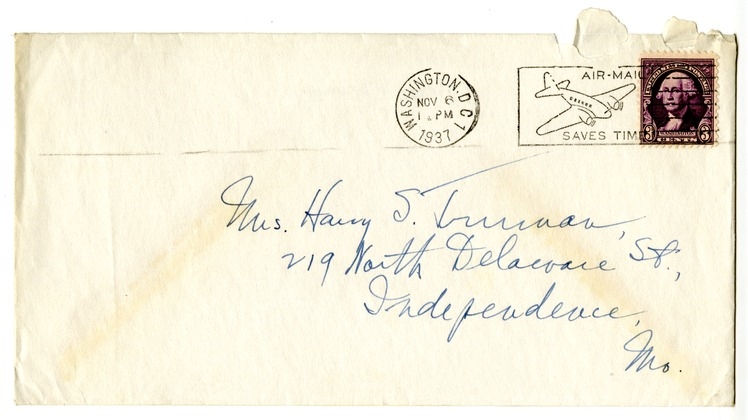 WASHINGTON, D.C. 1
NOV 6
1937
AIR-MAIL
SAVES TIME
3 WASHINGTON 3
Mrs. Harry S. Truman,
219 North Delaware St.,
Independence,
Mo.